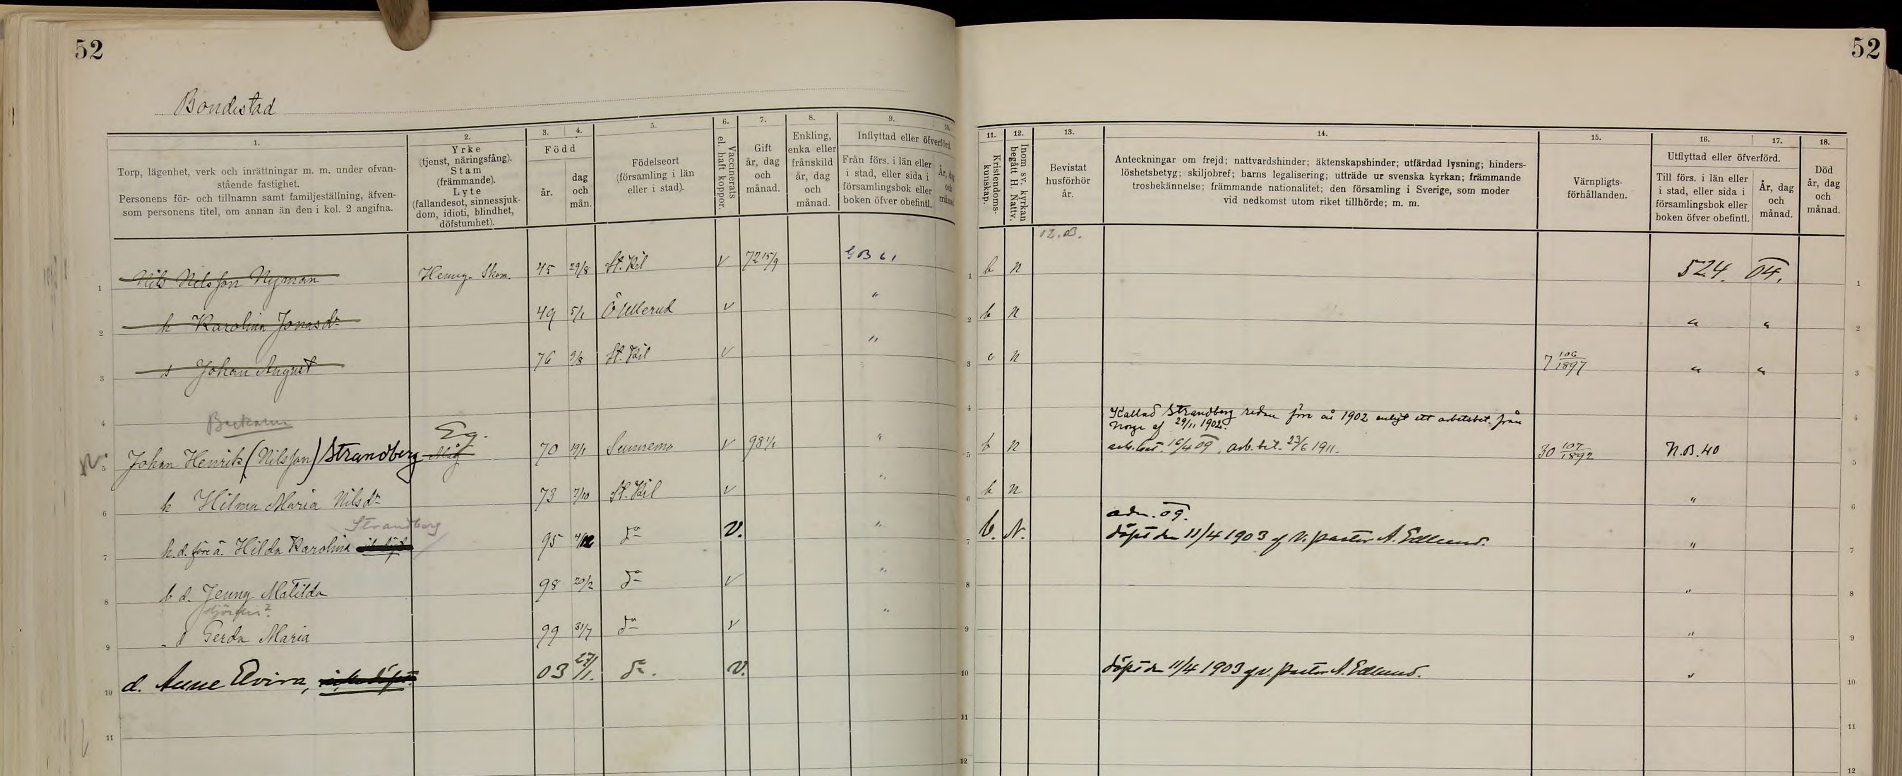 52
52
Bondestad
1.
Torp, lägenhet, verk och inrättningar m. m. under ofvan-
stående fastighet.
Personens för- och tillnamn samt familjeställning, äfven-
som personens titel, om annan än den i kol. 2 angifna.
2.
Yrke
(tjenst, näringsfång).
Stam
(främmande).
Lyte
(fallandesot, sinnessjuk-
dom, idioti, blindhet,
döfstumhet).
3. 4.
Född
år.
dag
och
mån.
5.
Födelseort
(församling i län
eller i stad).
6.
Vaccinerats
el. haft koppor.
7.
Gift
år, dag
och
månad.
8.
Enkling,
enka eller
frånskild
år, dag
och
månad.
9. 10.
Inflyttad eller öfverförd.
Från förs. i län eller
i stad, eller sida i
församlingsbok eller
boken öfver obefintl.
År, dag
och
månad.
11.
Kristendoms-
kunskap.
12.
Inom sv. kyrkan
begått H. Nattv.
13.
Bevistat
husförhör
år.
14.
Anteckningar om frejd; nattvardshinder; äktenskapshinder; utfärdad lysning; hinders-
löshetsbetyg; skiljobref; barns legalisering; utträde ur svenska kyrkan; främmande
trosbekännelse; främmande nationalitet; den församling i Sverige, som moder
vid nedkomst utom riket tillhörde; m. m.
15.
Värnpligts-
förhållanden.
16. 17.
Utflyttad eller öfverförd.
Till förs. i län eller
i stad, eller sida i
församlingsbok eller
boken öfver obefintl.
År, dag
och
månad.
18.
Död
år, dag
och
månad.
02.03.
1 Nils Nilsson Nyman Hemmeg. Skom. 45 29/8 St. Kil v 72 15/9 1 b n 524. 04. 1
2 h Karolina Jonasdr 49 5/1 Ö Ullerud v " 2 b n " " 2
3 s Johan August 76 9/8 St. Kil v " 3 c n 7 106/1897 " " 3
4 Backarne 4 Kallad Strandberg redan före år 1902 enligt ett arbetsbet. från
Norge af 29/11 1902.
5 Johan Henrik (Nilsson) Strandberg Eg. 70 19/1 Sunnemo v 98 1/1 " 5 b n arb.bet. 16/4 09, arb.bet. 23/6 1911. 30 107/1892 N.B. 40 5
6 h Hilma Maria Nilsdr 73 7/10 St. Kil v " 6 b n " 6
Strandberg
adm. 09.
7 h. d. före ä. Hilda Karolina 95 do V. " 7 b. N. döpt den 11/4 1903 af v. pastor A. Edlund. " 7
8 b d. Jenny Matilda 98 20/2 do v " 8 " 8
9 Gerda Maria 99 31/7 do v " 9 " 9
10 d. Anne Elvira, 03 27/1. do. V. 10 döpt den 11/4 1903 af v. pastor A. Edlund. " 10
11 11 11
12 12